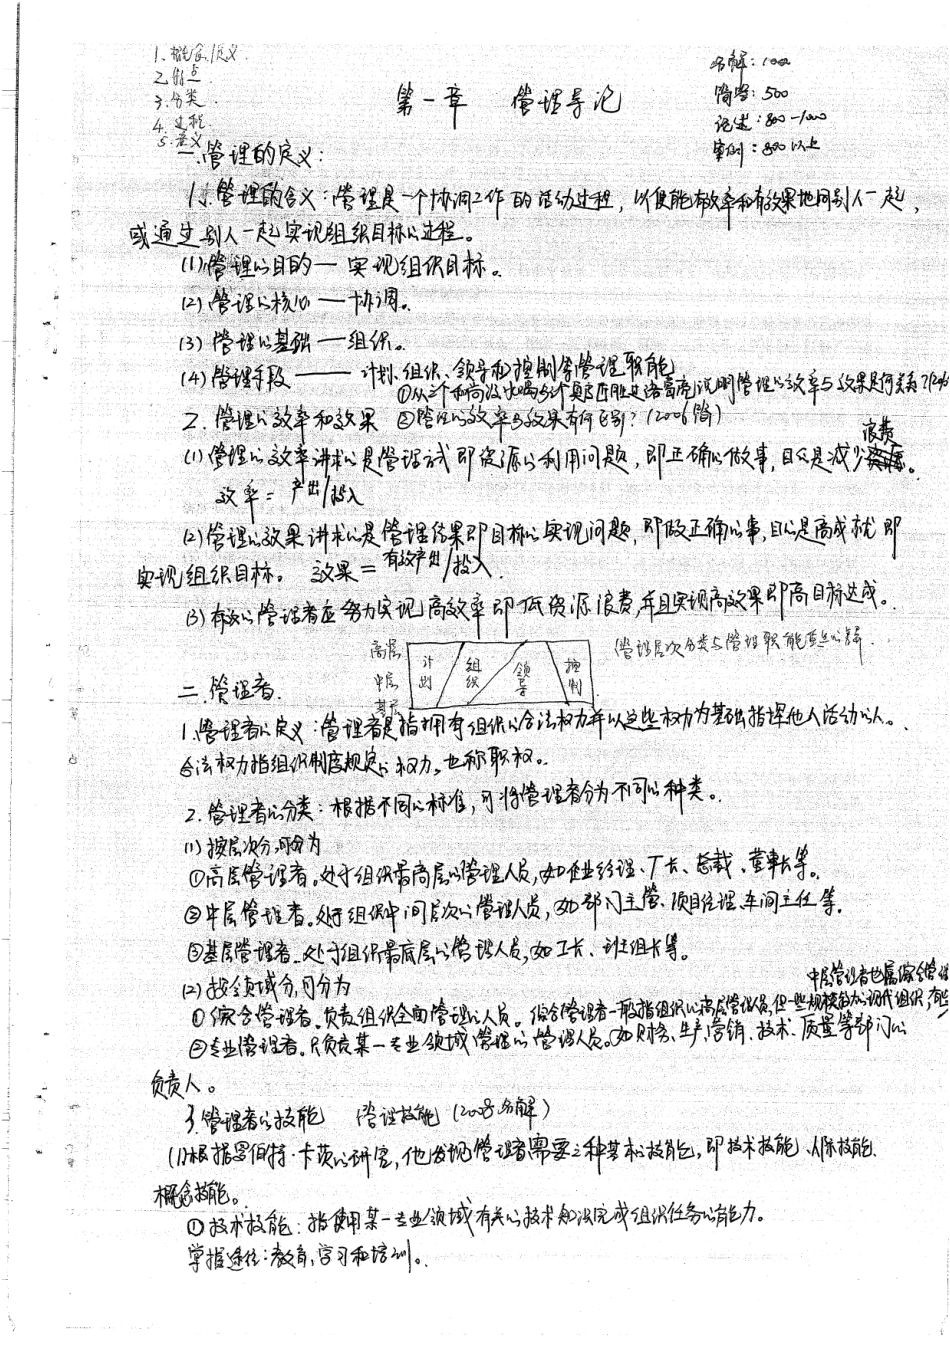 1、概念/定义
2、特点
3、分类
4、过程
5、意义
名解:100
简答:500
论述:800-1000
案例:800以上
第一章 管理导论
一、管理的定义:
1、管理的含义:管理是一个协调工作的活动过程,以便能有效率和有效果地同别人一起,
或通过别人一起实现组织目标的过程。
(1)管理的目的——实现组织目标。
(2)管理的核心——协调。
(3)管理的基础——组织。
(4)管理手段——计划、组织、领导和控制等管理职能
2、管理的效率和效果 ②管理的效率与效果有何区别?(2006简)
(1)管理的效率讲求的是管理方式即资源的利用问题,即正确的做事,目的是减少浪费。
效率=产出/投入
(2)管理的效果讲求的是管理结果即目标的实现问题,即做正确的事,目的是高成就即
实现组织目标。 效果=有效产出/投入.
(3)有效的管理者应努力实现高效率即低资源浪费,并且实现高效果即高目标达成。
高层 中层 基层 计划 组织 领导 控制
二、管理者
1、管理者的定义:管理者是指拥有组织的合法权力并以这些权力为基础指挥他人活动的人。
合法权力指组织制度规定的权力,也称职权。
2、管理者的分类:根据不同的标准,可将管理者分为不同的种类。
(1)按层次分,可分为
①高层管理者。处于组织最高层的管理人员,如企业经理、厂长、总裁、董事长等。
②中层管理者。处于组织中间层次的管理人员,如部门主管、项目经理、车间主任等.
③基层管理者。处于组织最底层的管理人员,如工长、班组长等。
(2)按领域分,可分为
①综合管理者。负责组织全面管理的人员。综合管理者一般指组织的高层管理人员,但一些规模较大的现代组织,有些
中层管理者也属综合管理
②专业管理者。只负责某一专业领域管理的管理人员。如财务、生产、营销、技术、质量等部门的
负责人。
3、管理者的技能 管理技能(2008名解)
(1)根据罗伯特·卡茨的研究,他发现管理者需要三种基本的技能,即技术技能、人际技能、
概念技能。
①技术技能:指使用某一专业领域有关的技术知识完成组织任务的能力。
掌握途径:教育,学习和培训。